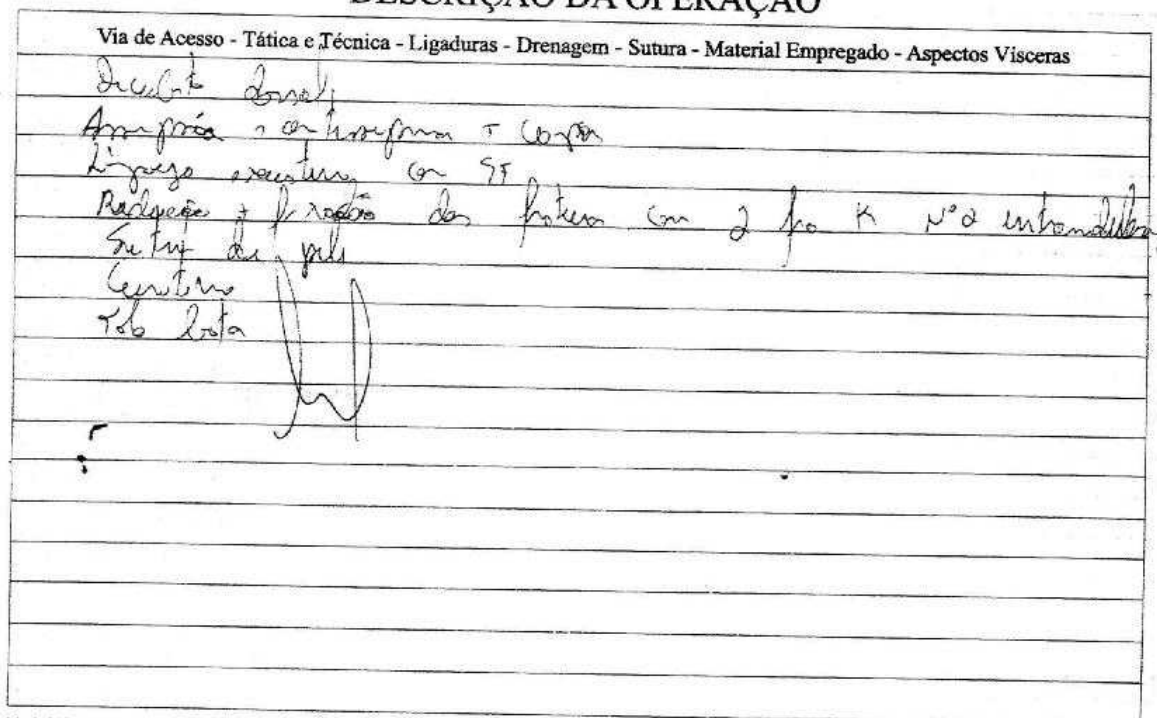 DESCRIÇÃO DA OPERAÇÃO
Via de Acesso - Tática e Técnica - Ligaduras - Drenagem - Sutura - Material Empregado - Aspectos Vísceras
Decúbito dorsal
Assepsia + antissepsia + Campos
Limpeza exaustiva com SF
Redução + fixação das fraturas com 2 fio K Nº 2 intramedular
Sutura de pele
Curativo
Tala Bota